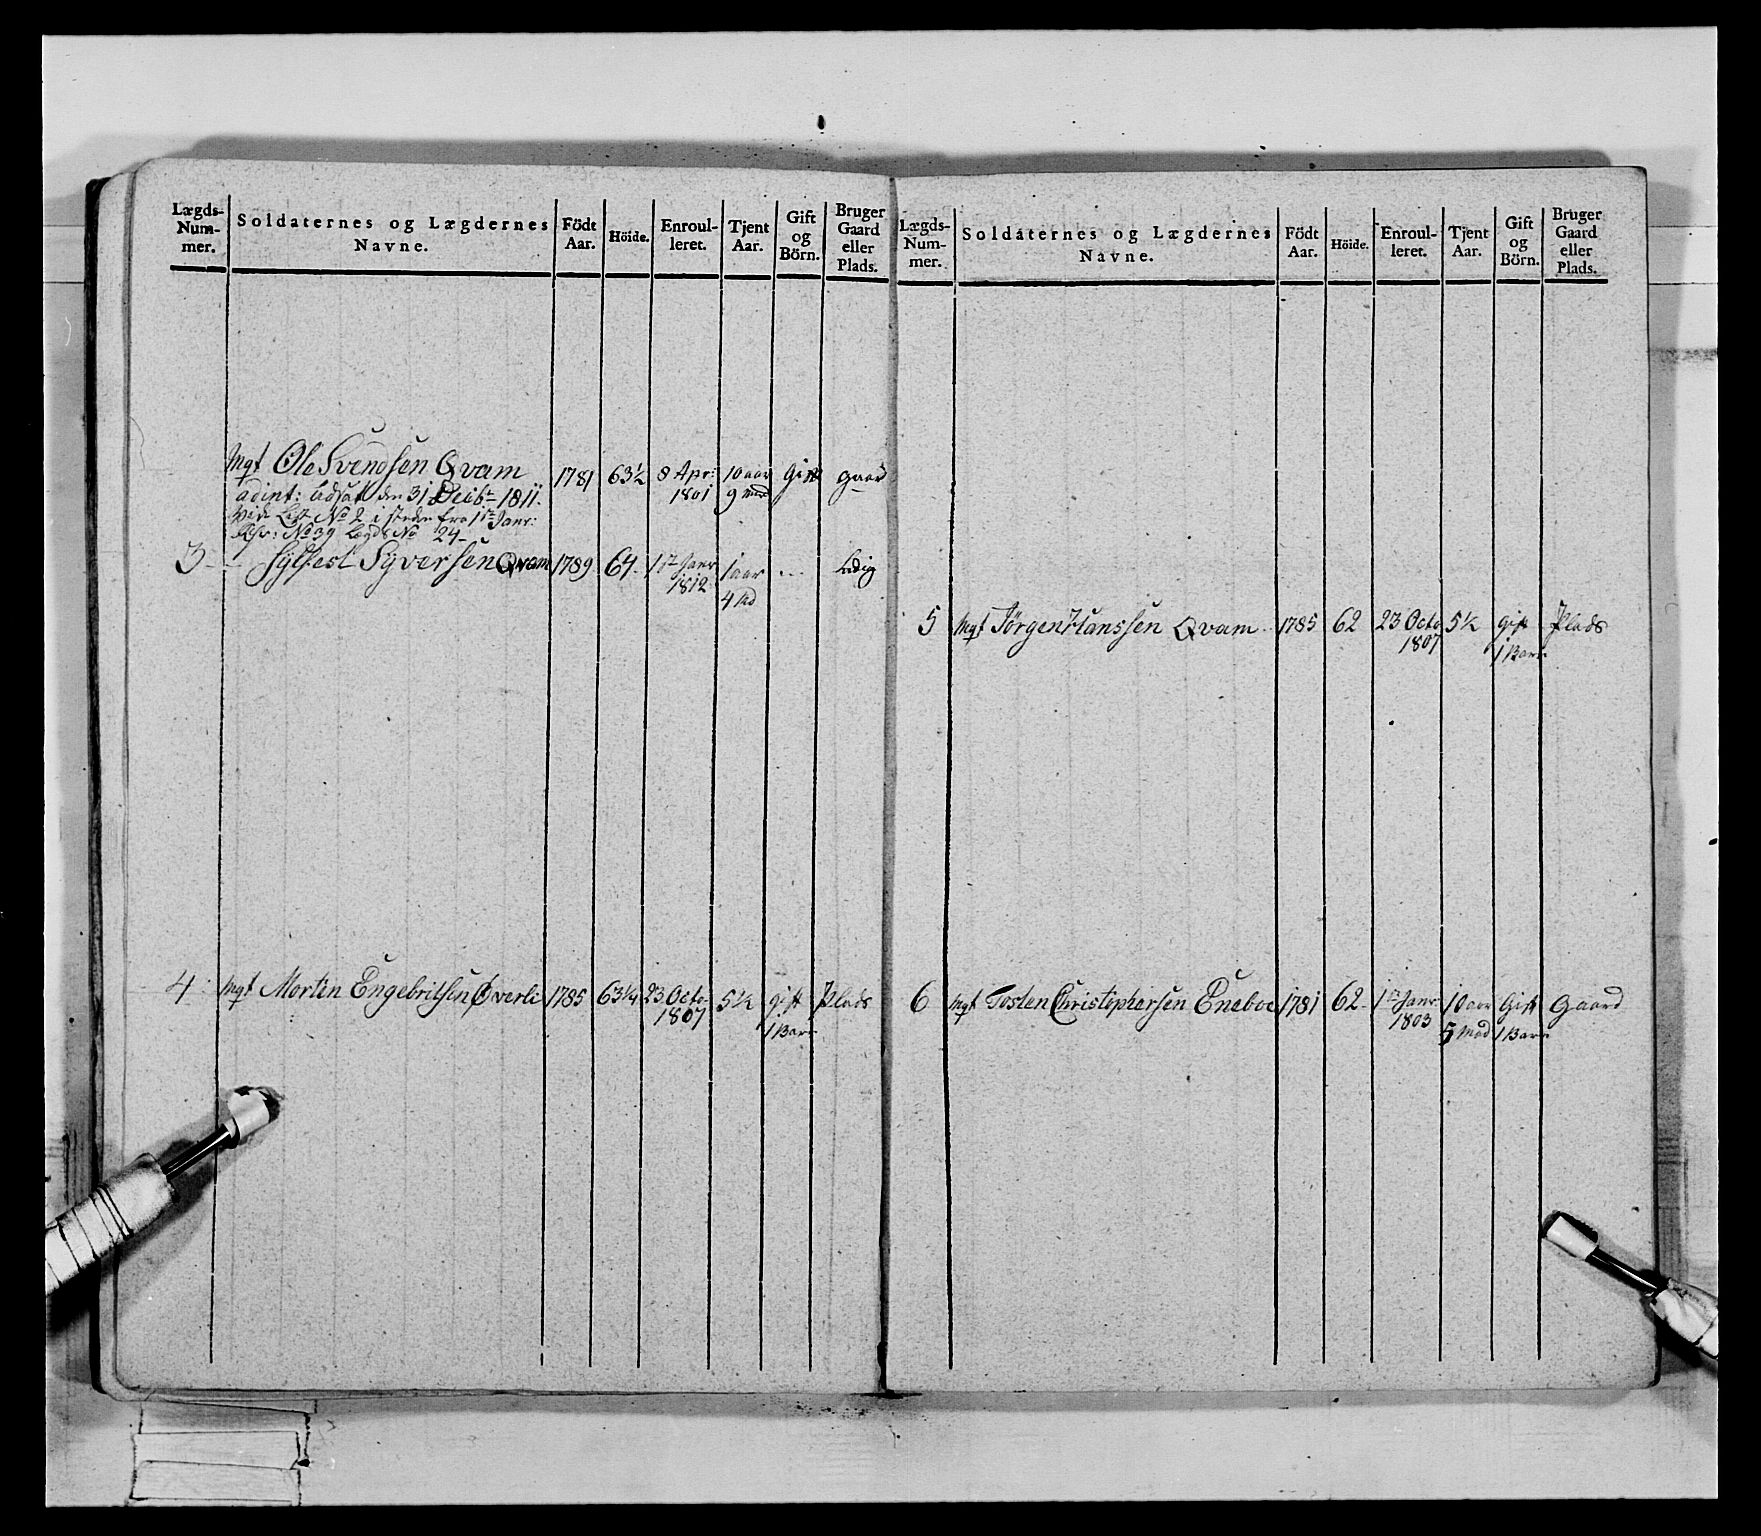 Lægds-Num-mer. Soldaternes og Lægdernes Navne. Födt Aar. Höide. Enroul-leret. Tjent Aar. Gift og Börn. Bruger Gaard eller Plads.
Mqt Ole Svendsen Qvam 1781 63½ 8 Apr: 1801 10 aar 9 Md Gift gaard
adint: Udsat den 31 Decibr 1811.
Vide List No 2 i steden fra 1ste Janr:
No 39 Lægds No 24
3 Syversen Qvam 1789 64 1ste Janr 1812 1 aar 4 Md ... Ledig
4 Mqt Morten Engebritsen Øverli 1785 63¼ 23 Octo- 1807 5½ gift 1 Barn Plads
Lægds-Num-mer. Soldaternes og Lægdernes Navne. Födt Aar. Höide. Enroul-leret. Tjent Aar. Gift og Börn. Bruger Gaard eller Plads.
5 Mqt Jørgen Hanssen Qvam 1785 62 23 Octo 1807 5½ gift 1 Barn Plads
6 Mqt Tosten Christophersen Eneboe 1781 62 1ste Janr: 1803 10 aar 5 Md Gift 1 Barn Gaard